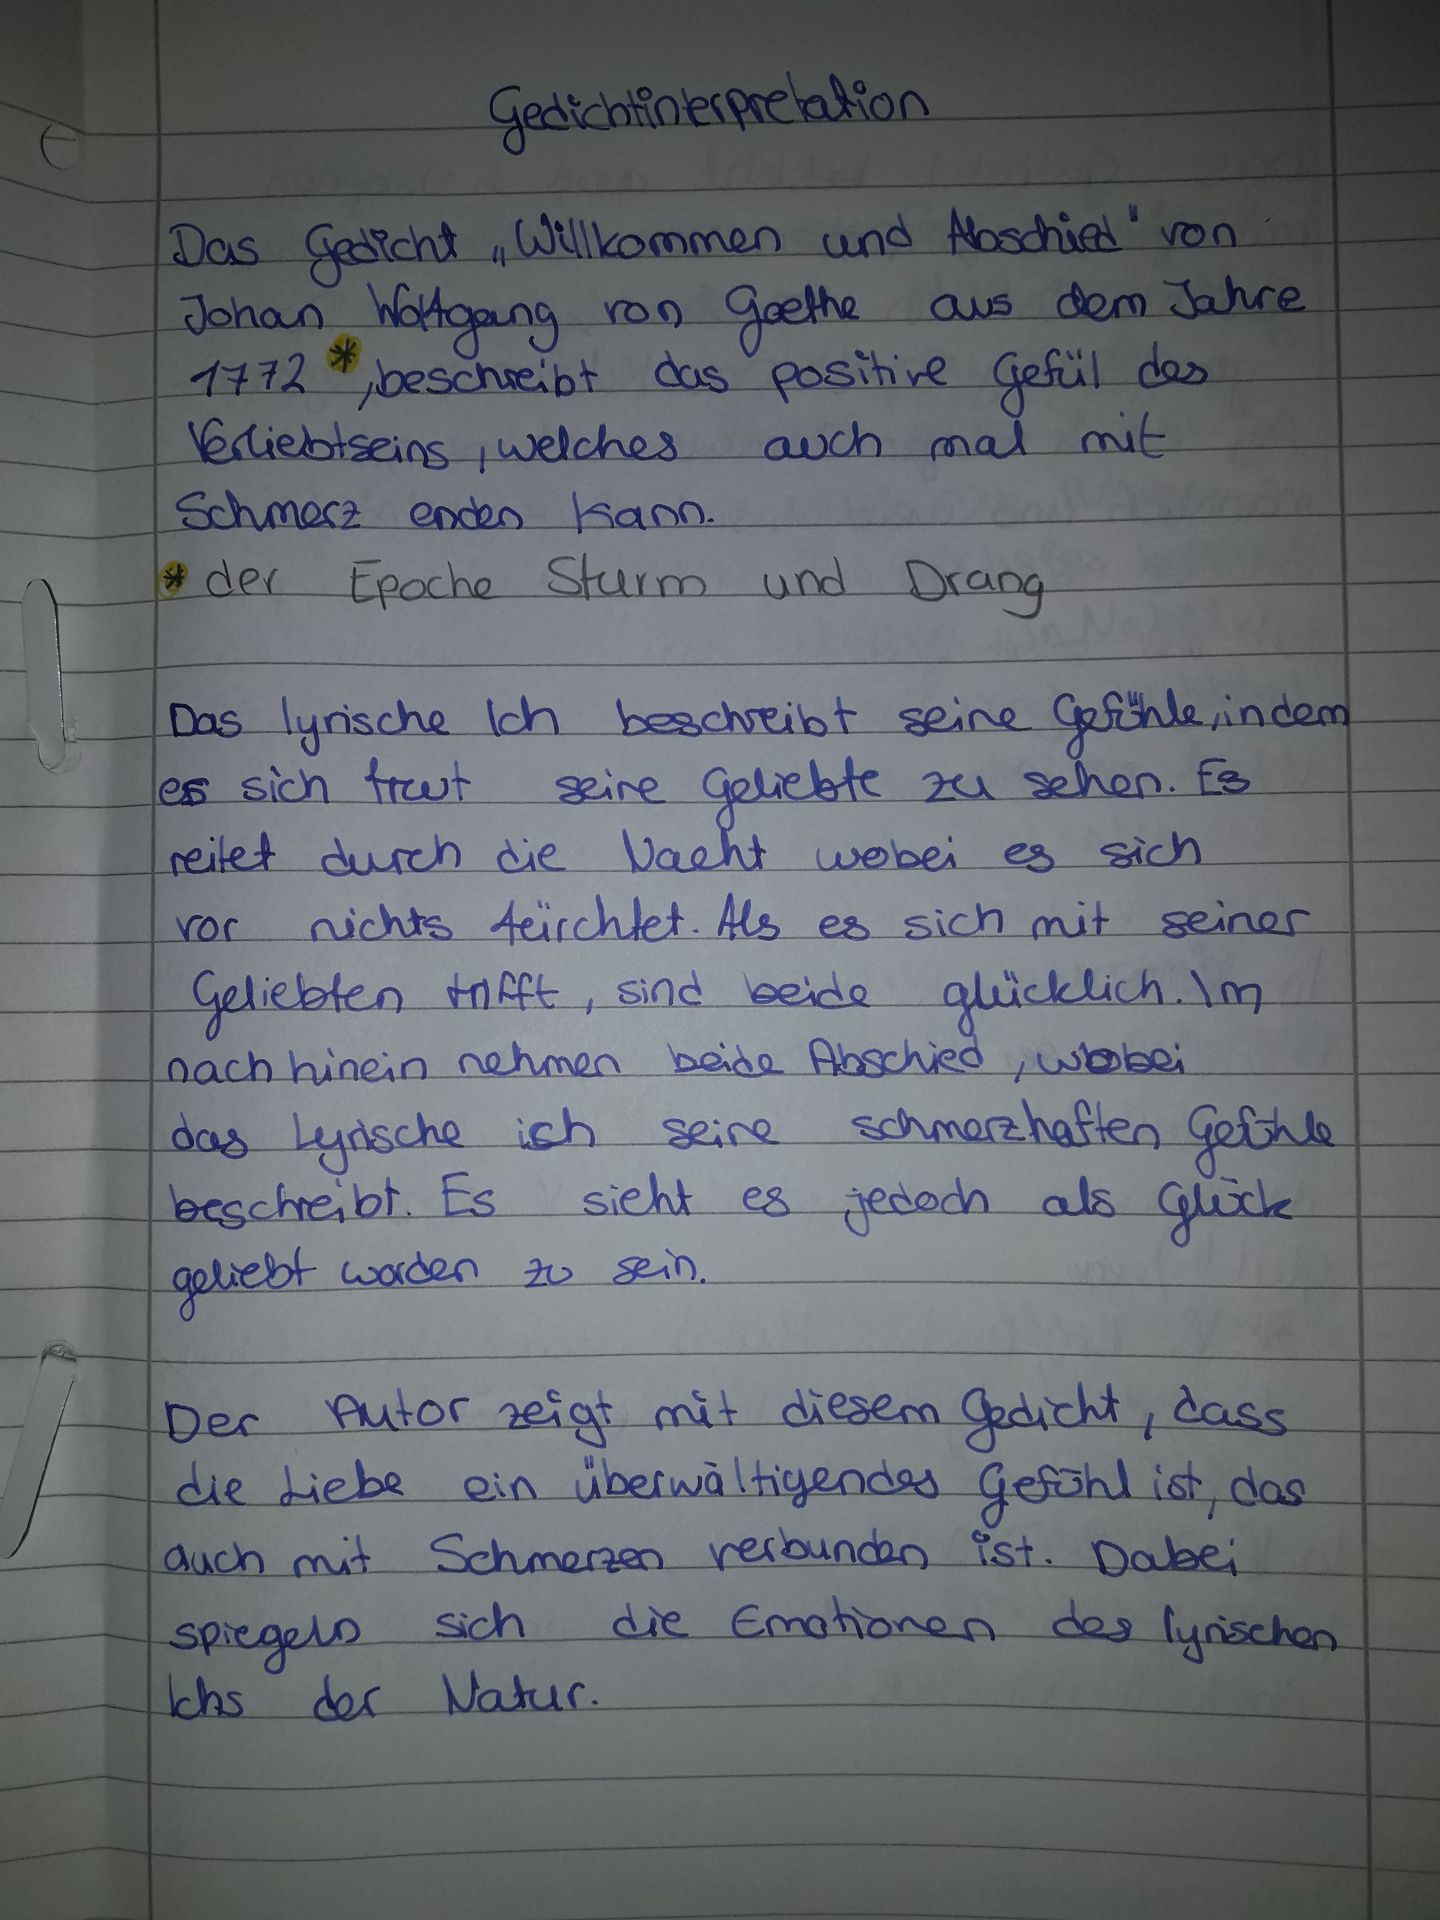 Gedichtinterpretation
Das Gedicht „Willkommen und Abschied" von
Johan Wolfgang von Goethe aus dem Jahre
1772 *, beschreibt das positive Gefül des
Verliebtseins, welches auch mal mit
Schmerz enden kann.
* der Epoche Sturm und Drang
Das lyrische Ich beschreibt seine Gefühle, indem
es sich freut seine Geliebte zu sehen. Es
reitet durch die Nacht wobei es sich
vor nichts fürchtet. Als es sich mit seiner
Geliebten trifft, sind beide glücklich. Im
nachhinein nehmen beide Abschied, wobei
das Lyrische ich seine schmerzhaften Gefühle
beschreibt. Es sieht es jedoch als Glück
geliebt worden zu sein.
Der Autor zeigt mit diesem Gedicht, dass
die Liebe ein überwältigendes Gefühl ist, das
auch mit Schmerzen verbunden ist. Dabei
spiegeln sich die Emotionen des lyrischen
Ichs der Natur.